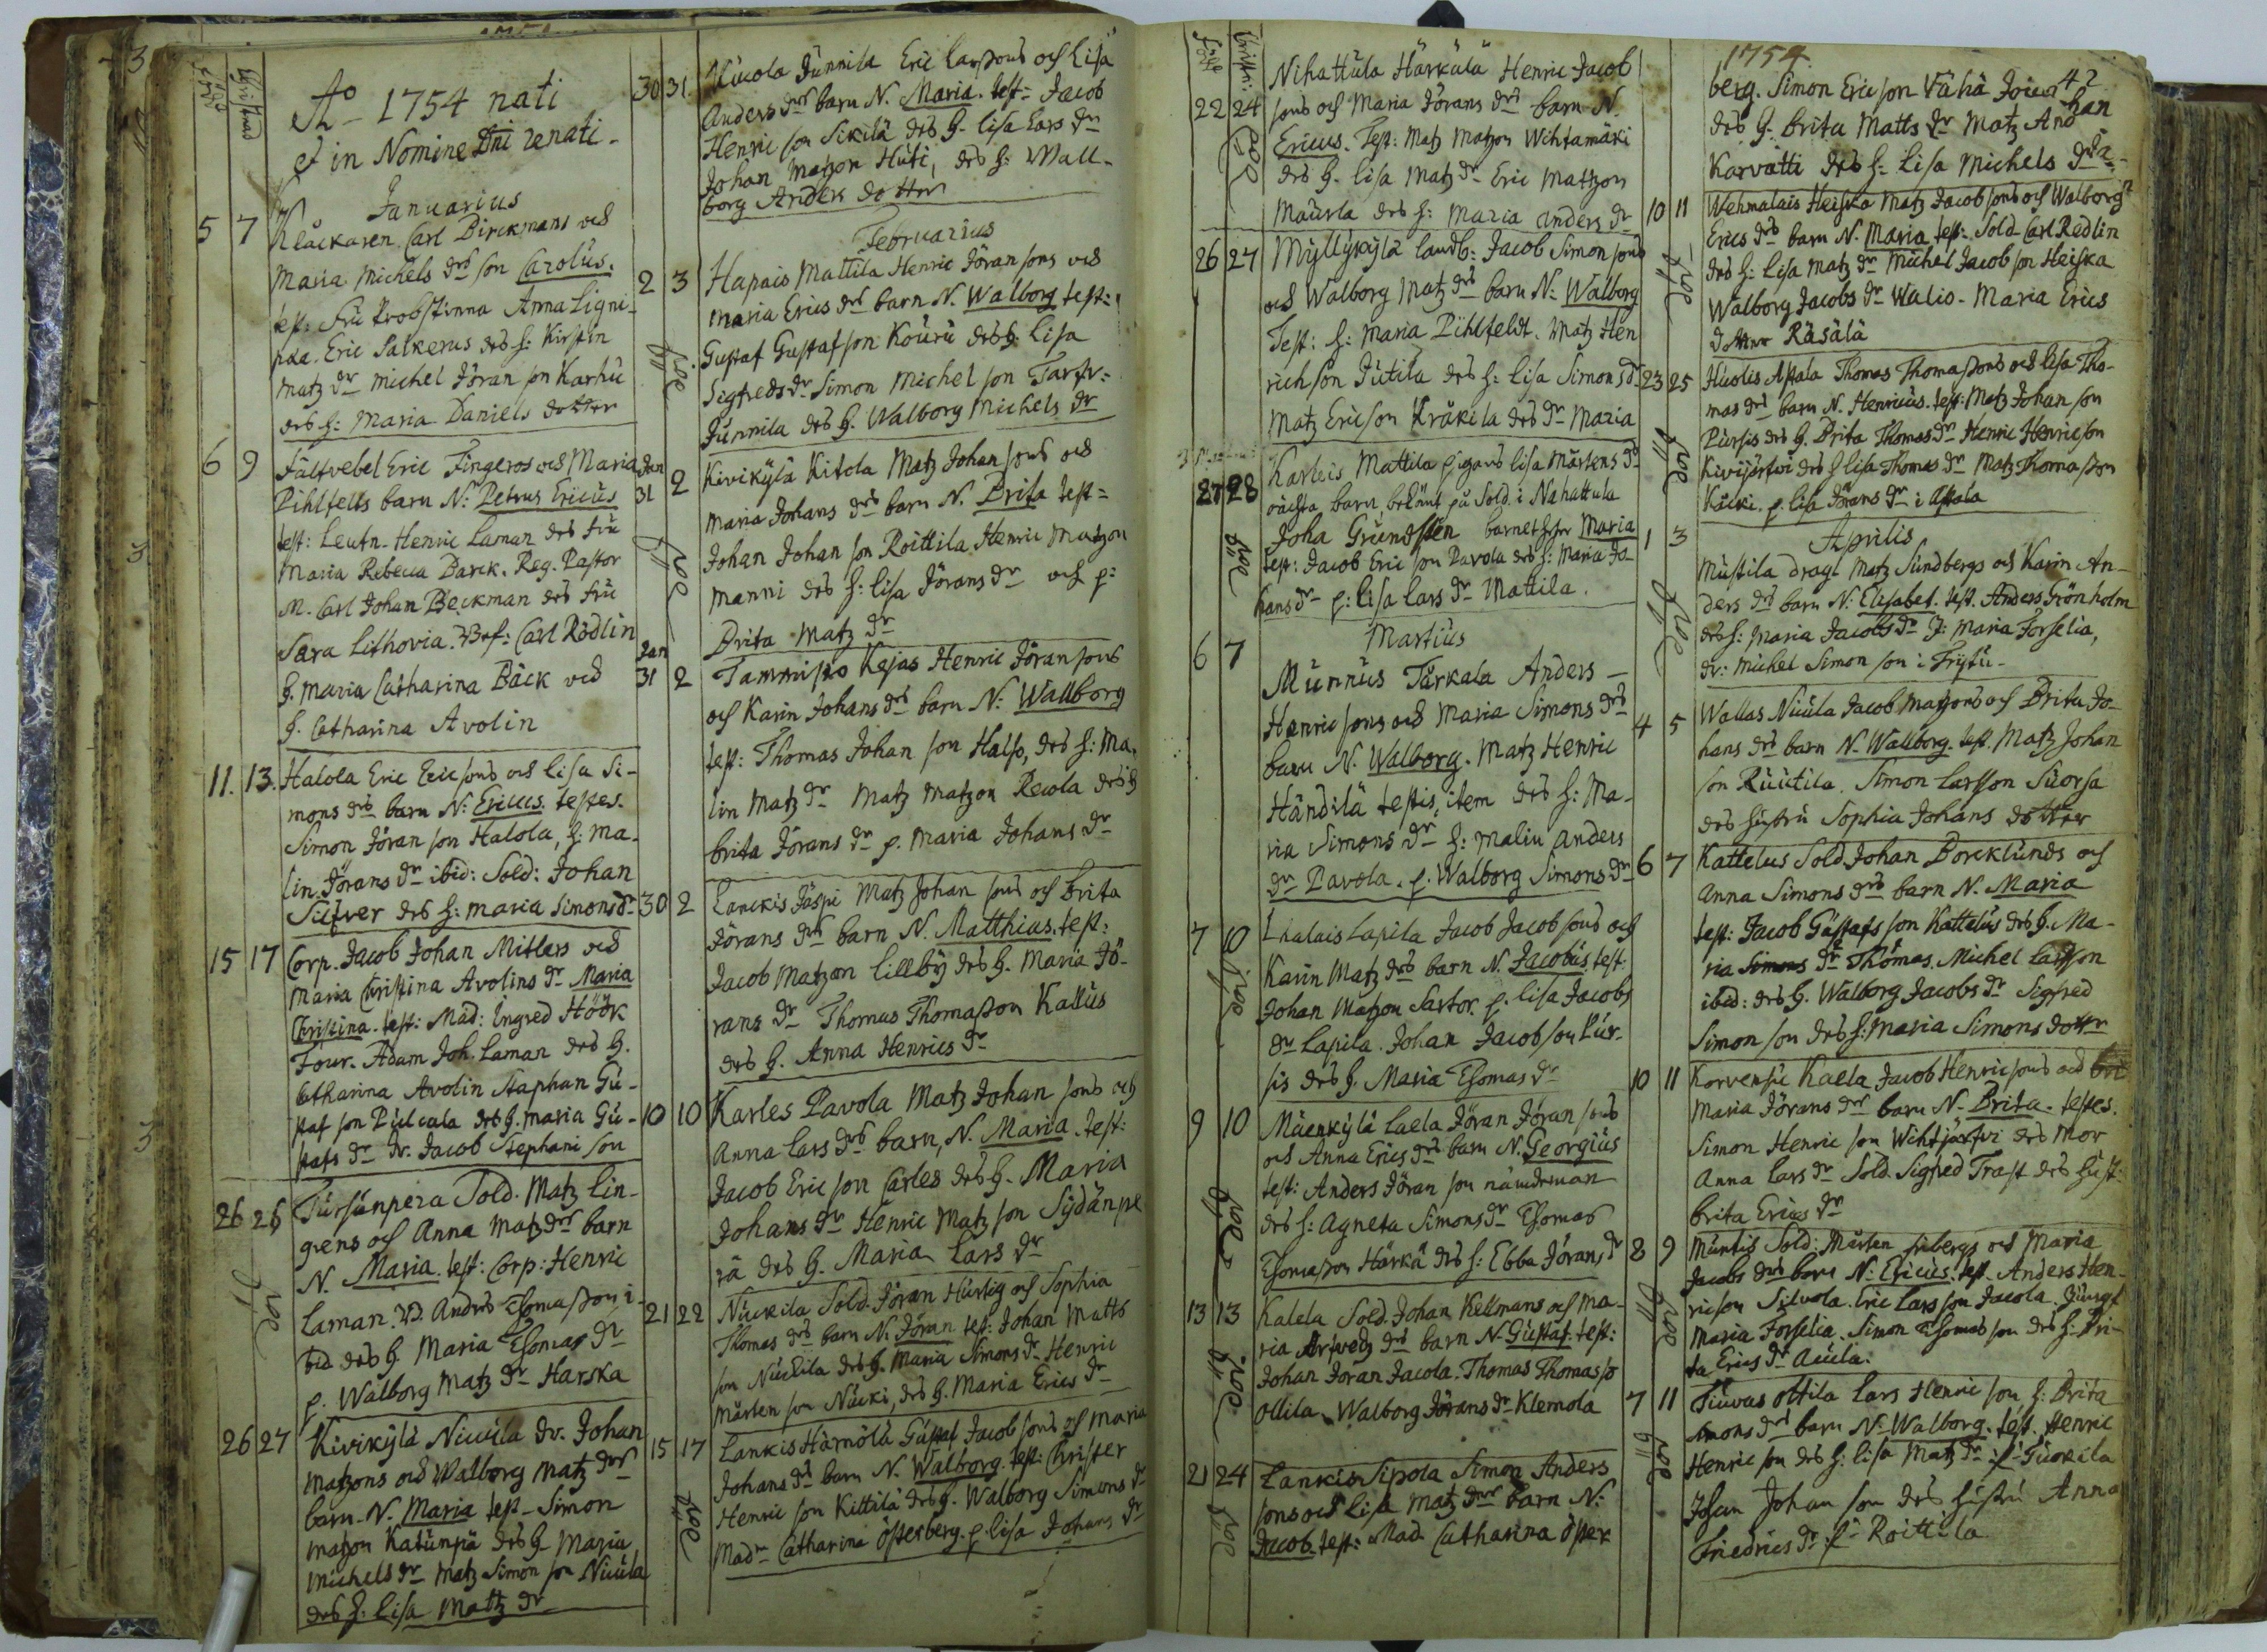 Ao 1754 nati
et in Nomine Dni renati.
Januarius
5 7 Klåckaren Carl Birckmans och
Maria Michels drs son Carolus.
test: Fru Probstinna Anna Ligni-
pæa. Eric Salkerus des h: Kirstin
Matz dr Michel Jöran son Karhu
des h: Maria Daniels dotter
6 9 Fältvebel Eric Fingeros och Maria
Pihlfelts barn N: Petrus Ericus
test: Leutn. Henric Laman des fru
Maria Rebecca Barck. Reg. Pastor
M. Carl Johan Beckman des fru
Sara Lithovia. Carl Rödlin
J. Maria Catharina Bäck och
J. Catharina Avolin
11. 13. Halola Eric Ericsons och Lisa Si-
mons drs barn N: Ericus. testes.
Simon Jöran son Halola, h: Ma-
lin Jörans dr ibid: Sold: Johan
Silfver des h: Maria Simons dr
15 17 Corp. Jacob Johan Mitlers och
Maria Christina Avolins dr Maria
Christina. test: Mad: Ingred Höök
Four. Adam Joh. Laman des h.
Catharina Avolin Staphan Gu-
staf son Pulcala des h. Maria Gu-
stafs dr dr. Jacob Stephani son
26 26 Tursunpera Sold. Matz Lin-
grens och Anna Matz drs barn
N. Maria. test: Corp: Henric
Laman. Anders Thomasson i-
bid des h Maria Thomas dr
p. Walborg Matz dr Harska
26 27 Kivikylä Nicula dr. Johan
Matzons och Walborg Matz drs
barn N. Maria test. Simon
Matzon Katunpä des h Maria
Michels dr Matz Simon son Nicula
des h: Lisa Matz dr
30 31 Junnila Eric Larsons och Lisa
Anders drs barn N. Maria. test= Jacob
Henric son Sikilä des h. Lisa Lars dr
Johan Matzon Huti, des h: Wall-
borg Anders dotter
Februarius
2 3 Hapais Mattila Henric Jöransons och
Maria Erics drs barn N. Walborg test:
Gustaf Gustafson Kouru des h. Lisa
Sigfreds dr Simon Michel son
Junnila des h. Walborg Michels dr
Jan
31 2 Kivikylä Kitola Matz Johan sons och
Maria Johans drs barn N. Brita test=
Johan Johan son Roittila Henric Matzon
Manni des h: Lisa Jörans dr och p:
Brita Matz dr
Jan
31 2 Tammisto Kejas Henric Jöransons
och Karin Johans drs barn N: Wallborg
test: Thomas Johan son Halso, des h: Ma-
lin Matz dr Matz Matzon Recola des h
brita Jörans dr p. Maria Johans dr
30 2 Lanckis Jäspi Matz Johan sons och brita
Jörans drs barn N. Matthias. test:
Jacob Matzon Lillby des h. Maria Jö-
rans dr Thomas Thomasson Kallus
des h. Anna Henrics dr
10 10 Karles Pavola Matz Johan sons och
Anna Lars drs barn, N. Maria. test:
Jacob Eric son Carles des h. Maria
Johans dr Henric Matz son Sydänpe
rä des h. Maria Lars dr
21 22 Nuckila Sold Jöran Hurtig och Sophia
Thomas drs barn N. Jöran test: Johan Matts
son Nuckila des h. Maria Simons dr Henric
Mårten son Näcki, des h. Maria Erics dr
15 17 Lankis Härnölä Gustaf Jacob sons och Maria
Johans drs barn N. Walborg. test: Christer
Henric son Kittilä des h. Walborg Simons dr
Madm Catharina Österberg. p Lisa Johans dr
22 24 Nihattula Härkälä Henric Jacob
sons och Maria Jörans drs barn N.
Ericus. Test: Matz Matzon Wihtamäki
des h. Lisa Matz dr Eric Mattzon
Maurla des h: Maria Anders dr
26 27 Myllykylä landb: Jacob Simon sons
och Walborg Matz drs barn N: Walborg
Test: h: Maria Pihlfeldt. Matz Hen
rich son Jutila des h: Lisa Simons dr
Matz Ericson Kräkilä des dr Maria
27 28 Karleis Mattila pigans Lisa Mårtens drs
oächta barn, belönt på Sold. i Nahattula
Joha Grundsten barnet heter Maria
test: Jacob Eric son Pavola des h: Maria Jo-
hans dr p: Lisa Lars dr Mattila.
Martius
6 7 Munnus Tärkala Anders
Henric sons och Maria Simons drs
barn N. Walborg. Matz Henric
Händilä testis, item des h: Ma-
ria Simons dr h: Malin Anders
dr Pavola. p. Walborg Simons dr
7 10 Lhalais Lapila Jacob Jacob sons och
Karin Matz drs barn N. Jacobus test:
Johan Matzon Sartor. p. Lisa Jacobs
dr Lapila. Johan Jacob son Pur-
sis des h. Maria Thomas dr
9 10 Muenkylä Laela Jöran Jöran sons
och Anna Erics drs barn N. Georgius
test: Anders Jöran son nämdeman
des h: Agneta Simons dr Thomas
Thomasson Härkä des h: Ebba Jörans dr
13 13 Kalela Sold. Johan Kellmans och Ma-
ria Arfweds drs barn N. Gustaf. test:
Johan Jöran Jacola. Thomas Thomas so
Ollila Walborg Jörans dr Klemola
21 24 Lankis Sipola Simon Anders
sons och Lisa Matz drs barn N:
Jacob test: Mad Catharina Öster
1754.
42
berg. Simon Ericson Vähä Joien
des h. Brita Matts dr Matz Anhan
Karvatti des h: Lisa Michels dr
10 11 Wehmalais Heiska Matz Jacob sons och Walborg
Erics drs barn N. Maria test: Sold Carl Redlin
des h: Lisa Matz dr Michel Jacob son Heiska
Walborg Jacobs dr Walio. Maria Erics
dotter Räsälä
23 25 Huolis Astala Thomas Thomassons och Lisa Tho-
mas drs barn N. Henricus. test: Matz Johan son
Pursis des h. Brita Thomas dr Henric Henricson
Kivijärfwi des h Lisa Thomas dr Matz Thomasson
Käcki. p. Lisa Jörans dr i Astala
Aprilis
1 3 Mustila drag. Matz Sundbergs och Karin An-
ders drs barn N: Elisabet. test. Anders Grönholm
des h: Maria Jacobs dr J: Maria Forselia,
dr: Michel Simon son i Frysu.
4 5 Wallas Nicula Jacob Matzons och Brita Jo-
hans drs barn N. Wallborg. test. Matz Johan
son Ruutila. Simon Larsson Suorsa
des hustru Sophia Johans dotter
6 7 Kattelus Sold Johan Borcklunds och
Anna Simons drs barn N. Maria
test: Jacob Gustafs son Kattelus des h. Ma-
ria Simons dr Thomas. Michel Larsson
ibid: des h. Walborg Jacobs dr Sigfred
Simon son des h: Maria Simons dotter
10 11 Korvensu Kaela Jacob Henric sons och
Maria Jörans drs barn N. Brita. testes.
Simon Henric son Wihtjärfvi des Mor
Anna Lars dr Sold. Sigfred Trast des hust:
brita Erics dr
8 9 Muntis Sold: Mårten fribergs och Maria
Jacobs drs barn N: Ericus. test. Anders Hen-
ricson Silvola. Eric Larsson Jacola. Jungf
Maria Forselia. Simon Thomas son des h. Bri-
ta Erics dr Acula.
7 11 Tiuvas Ottila Lars Henric son h: Brita
Simons drs barn N. Walborg. test. Henric
Henric son des h: Lisa Matz dr i Tuokila
Johan Johan son des hustru Anna
Friedrics dr i Roittila